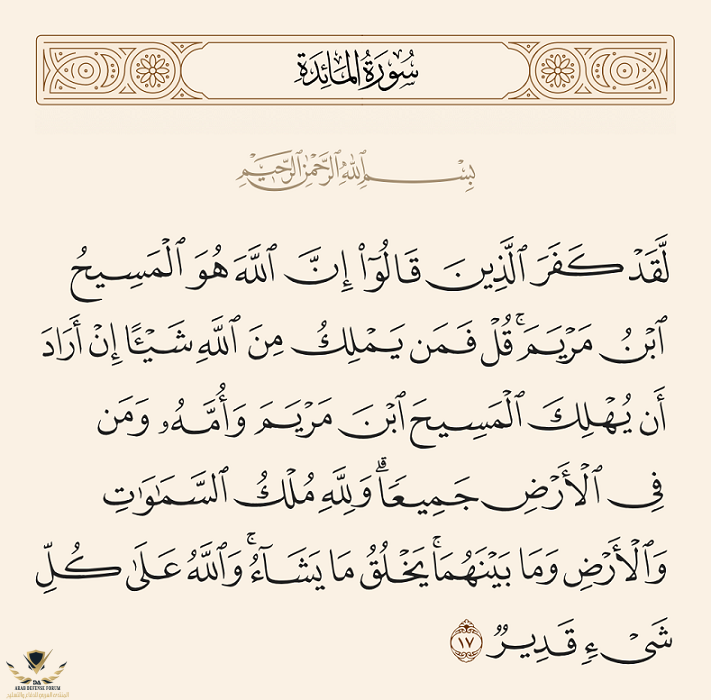 سُورَةُ المَائِدَةِ
بِسْمِ اللَّهِ الرَّحْمَٰنِ الرَّحِيمِ
لَّقَدْ كَفَرَ ٱلَّذِينَ قَالُوٓا۟ إِنَّ ٱللَّهَ هُوَ ٱلْمَسِيحُ
ٱبْنُ مَرْيَمَ ۚ قُلْ فَمَن يَمْلِكُ مِنَ ٱللَّهِ شَيْـًٔا إِنْ أَرَادَ
أَن يُهْلِكَ ٱلْمَسِيحَ ٱبْنَ مَرْيَمَ وَأُمَّهُۥ وَمَن
فِى ٱلْأَرْضِ جَمِيعًا ۗ وَلِلَّهِ مُلْكُ ٱلسَّمَٰوَٰتِ
وَٱلْأَرْضِ وَمَا بَيْنَهُمَا ۚ يَخْلُقُ مَا يَشَآءُ ۚ وَٱللَّهُ عَلَىٰ كُلِّ
شَىْءٍ قَدِيرٌ ١٧
ARAB DEFENSE FORUM